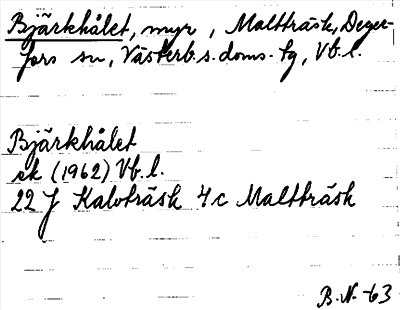 Bjärkhålet, myr, Maltträsk, Deger-
fors sn, Västerb. s. doms. tg, Vb. l.
Bjärkhålet
ek (1962) Vb. l.
22 J Kalvträsk 4 c Maltträsk
B. N. -63